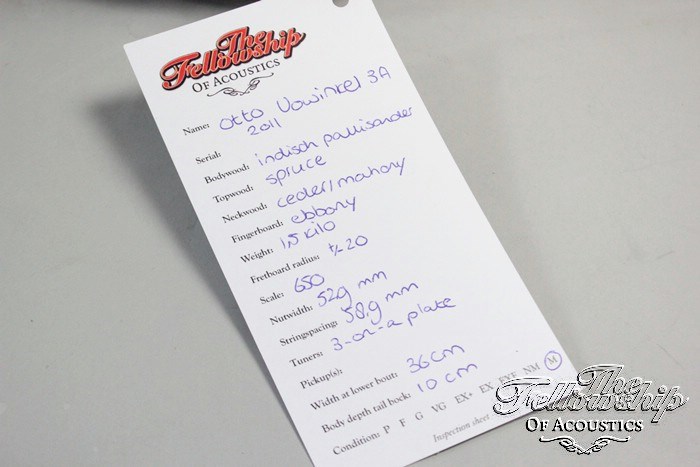 The
Fellowship
OF ACOUSTICS
Name: Otto Vowinkel 3A
Serial: 2011
Bodywood: indisch pallisander
Topwood: spruce
Neckwood: ceder/mahony
Fingerboard: ebbony
Weight: 1,5 kilo
Fretboard radius: +/- 20
Scale: 650
Nutwidth: 52,9 mm
Stringspacing: 58,9 mm
Tuners: 3-on-a plate
Pickup(s):
Width at lower bout: 36 cm
Body depth tail bock: 10 cm
Condition: P F G VG EX- EX EYF NM M
Inspection sheet
The
Fellowship
OF ACOUSTICS